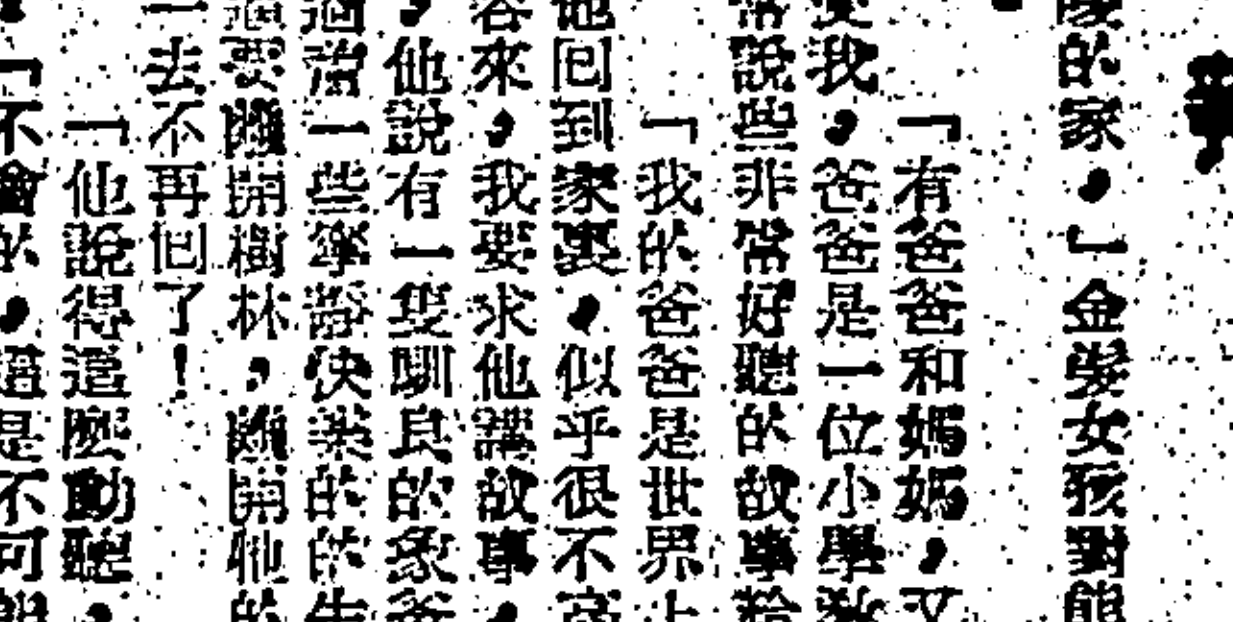 的家。」金髮女孩對
「有爸爸和媽媽,又
我,爸爸是一位小學
常說些非常好聽的故事給
「我的爸爸是世界上
他回到家裏,似乎很不高
容來,我要求他講故事,
,他說有一隻馴良的象爸
過着一些寧靜快樂的的生
要離開樹林,離開他的
一去不再回了!
「他說得這麼動聽,
「不會的,這是不可能